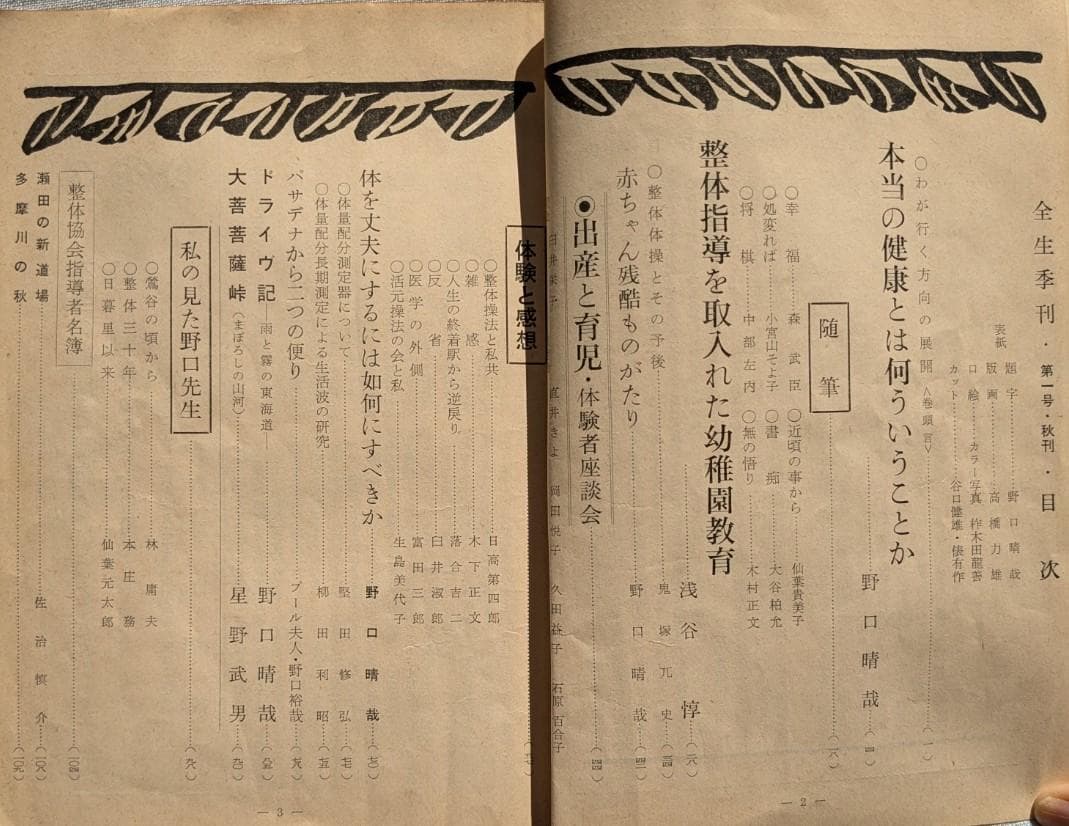 全生季刊・第一号・秋刊・目次
題字 野口晴哉
表紙
版画 高橋力雄
口絵 カラー写真 柞木田龍善
カット 谷口健雄・俵有作
○わが行く方向の展開〈巻頭言〉 (一)
本当の健康とは何ういうことか 野口晴哉 (四)
随筆 (一八)
○幸福 森武臣
○近頃の事から 仙葉貴美子
○処変れば 小宮山そよ子
○書痴 大谷柏允
○将棋 中部左内
○無の悟り 木村正文
整体指導を取入れた幼稚園教育 浅谷惇 (二六)
○整体体操とその予後 鬼塚兀史 (三四)
赤ちゃん残酷ものがたり 野口晴哉 (四一)
◉出産と育児・体験者座談会 (四四)
臼井栄子 直井きよ 岡田悦子 久田益子 石原百合子
— 2 —
体験と感想
○整体操法と私共 日高第四郎
○雑感 木下正文
○人生の終着駅から逆戻り 落合吉二
○反省 臼井淑郎
○医学の外側 富田三郎
○活元操法の会と私 生島美代子
体を丈夫にするには如何にすべきか 野口晴哉
○体量配分測定器について 堅田修弘
○体量配分長期測定による生活波の研究 柳田利昭
パサデナから二つの便り プール夫人・野口裕哉
ドライヴ記—雨と霧の東海道 野口晴哉
大菩薩峠(まぼろしの山河) 星野武男
私の見た野口先生
○鶯谷の頃から 林庸夫
○整体三十年 本庄務
○日暮里以来 仙葉元太郎
整体協会指導者名簿 (一〇四)
瀬田の新道場 佐治慎介 (一〇八)
多摩川の秋 (一〇九)
— 3 —